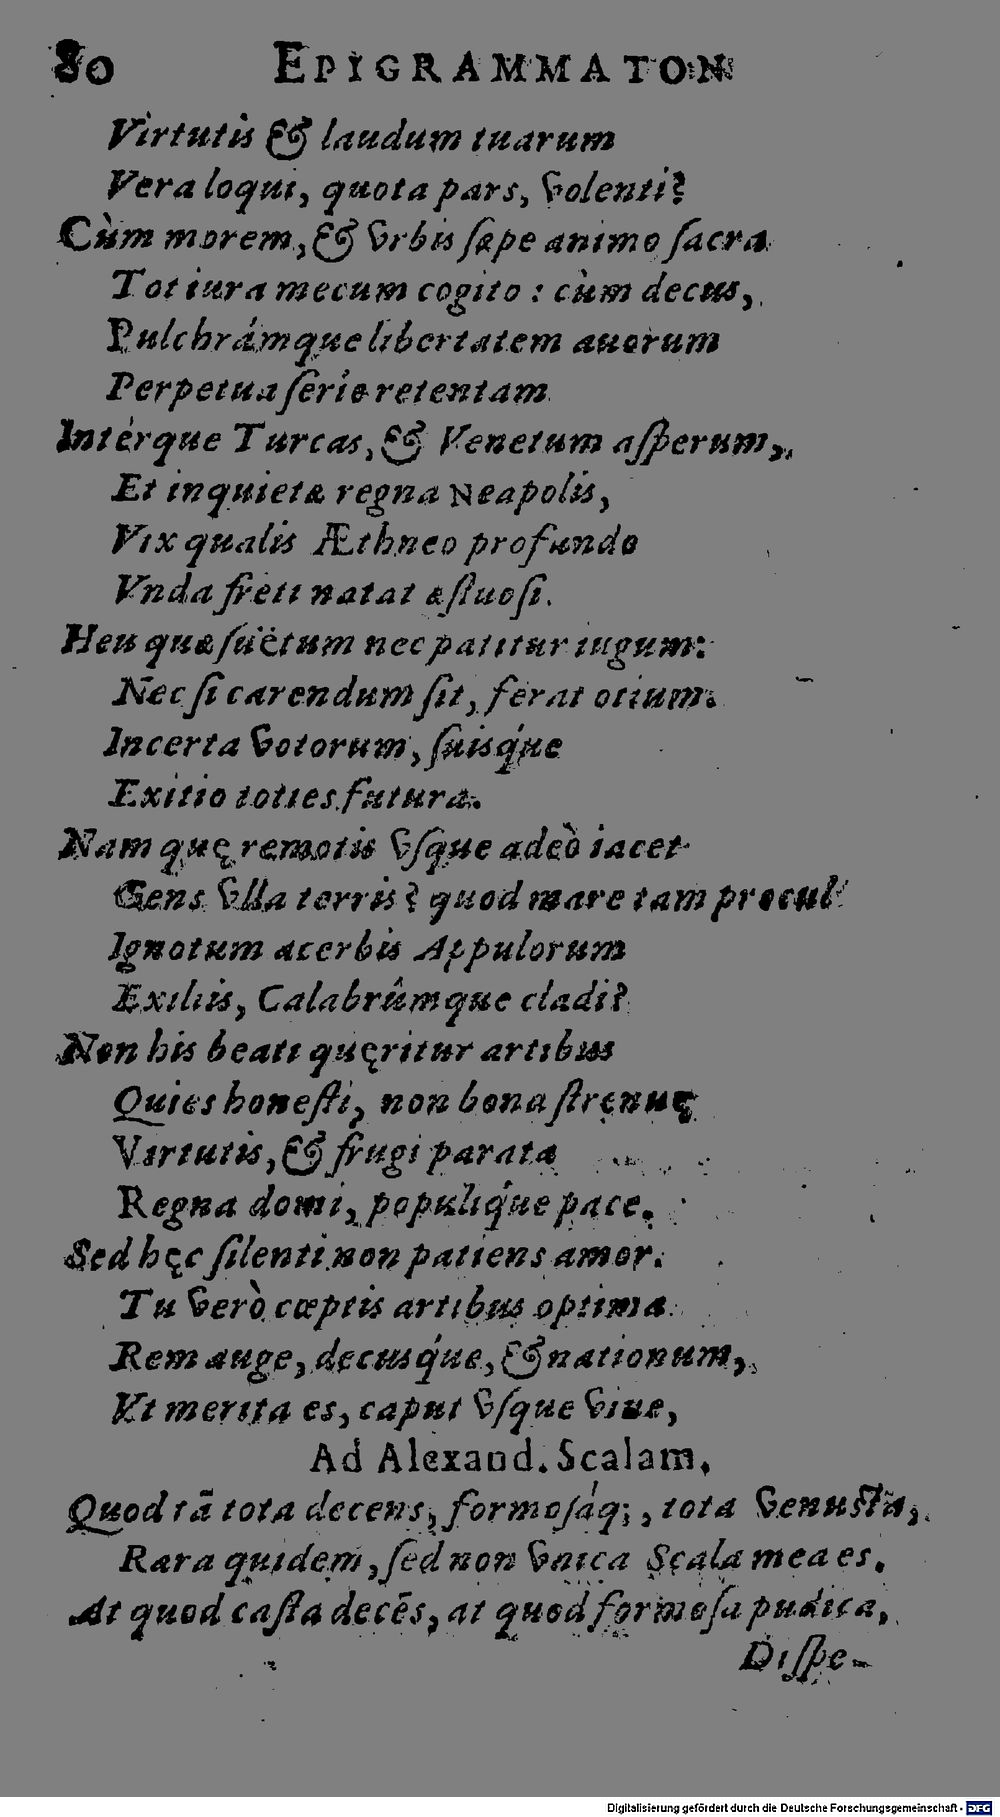 80 EPIGRAMMATON
Virtutis & laudum tuarum
Vera loqui, quota pars, volenti?
Cùm morem, & vrbis sæpe animo sacra
Tot iura mecum cogito: cùm decus,
Pulchrámque libertatem auorum
Perpetua serie retentam
Intérque Turcas, & Venetum asperum,
Et inquietæ regna Neapolis,
Vix qualis Æthneo profundo
Vnda freti natat æstuosi.
Heu quæ suëtum nec patitur iugum:
Nec si carendum sit, ferat otium.
Incerta votorum, suisq́ue
Exitio toties futura.
Nam quę remotis vsque adeò iacet
Gens vlla terris? quod mare tam procul
Ignotum acerbis Appulorum
Exiliis, Calabrûmque cladi?
Non his beati quęritur artibus
Quies honesti, non bona strenuę
Virtutis, & frugi parata
Regna domi, populiq́ue pace.
Sed hęc silenti non patiens amor.
Tu verò cœptis artibus optima
Rem auge, decusq́ue, & nationum,
Vt merita es, caput vsque viue,
Ad Alexand. Scalam.
Quod tā tota decens, formosáq;, tota venusta,
Rara quidem, sed non vnica Scala mea es.
At quod casta decēs, at quod formosa pudica,
Dispe-
Digitalisierung gefördert durch die Deutsche Forschungsgemeinschaft - DFG